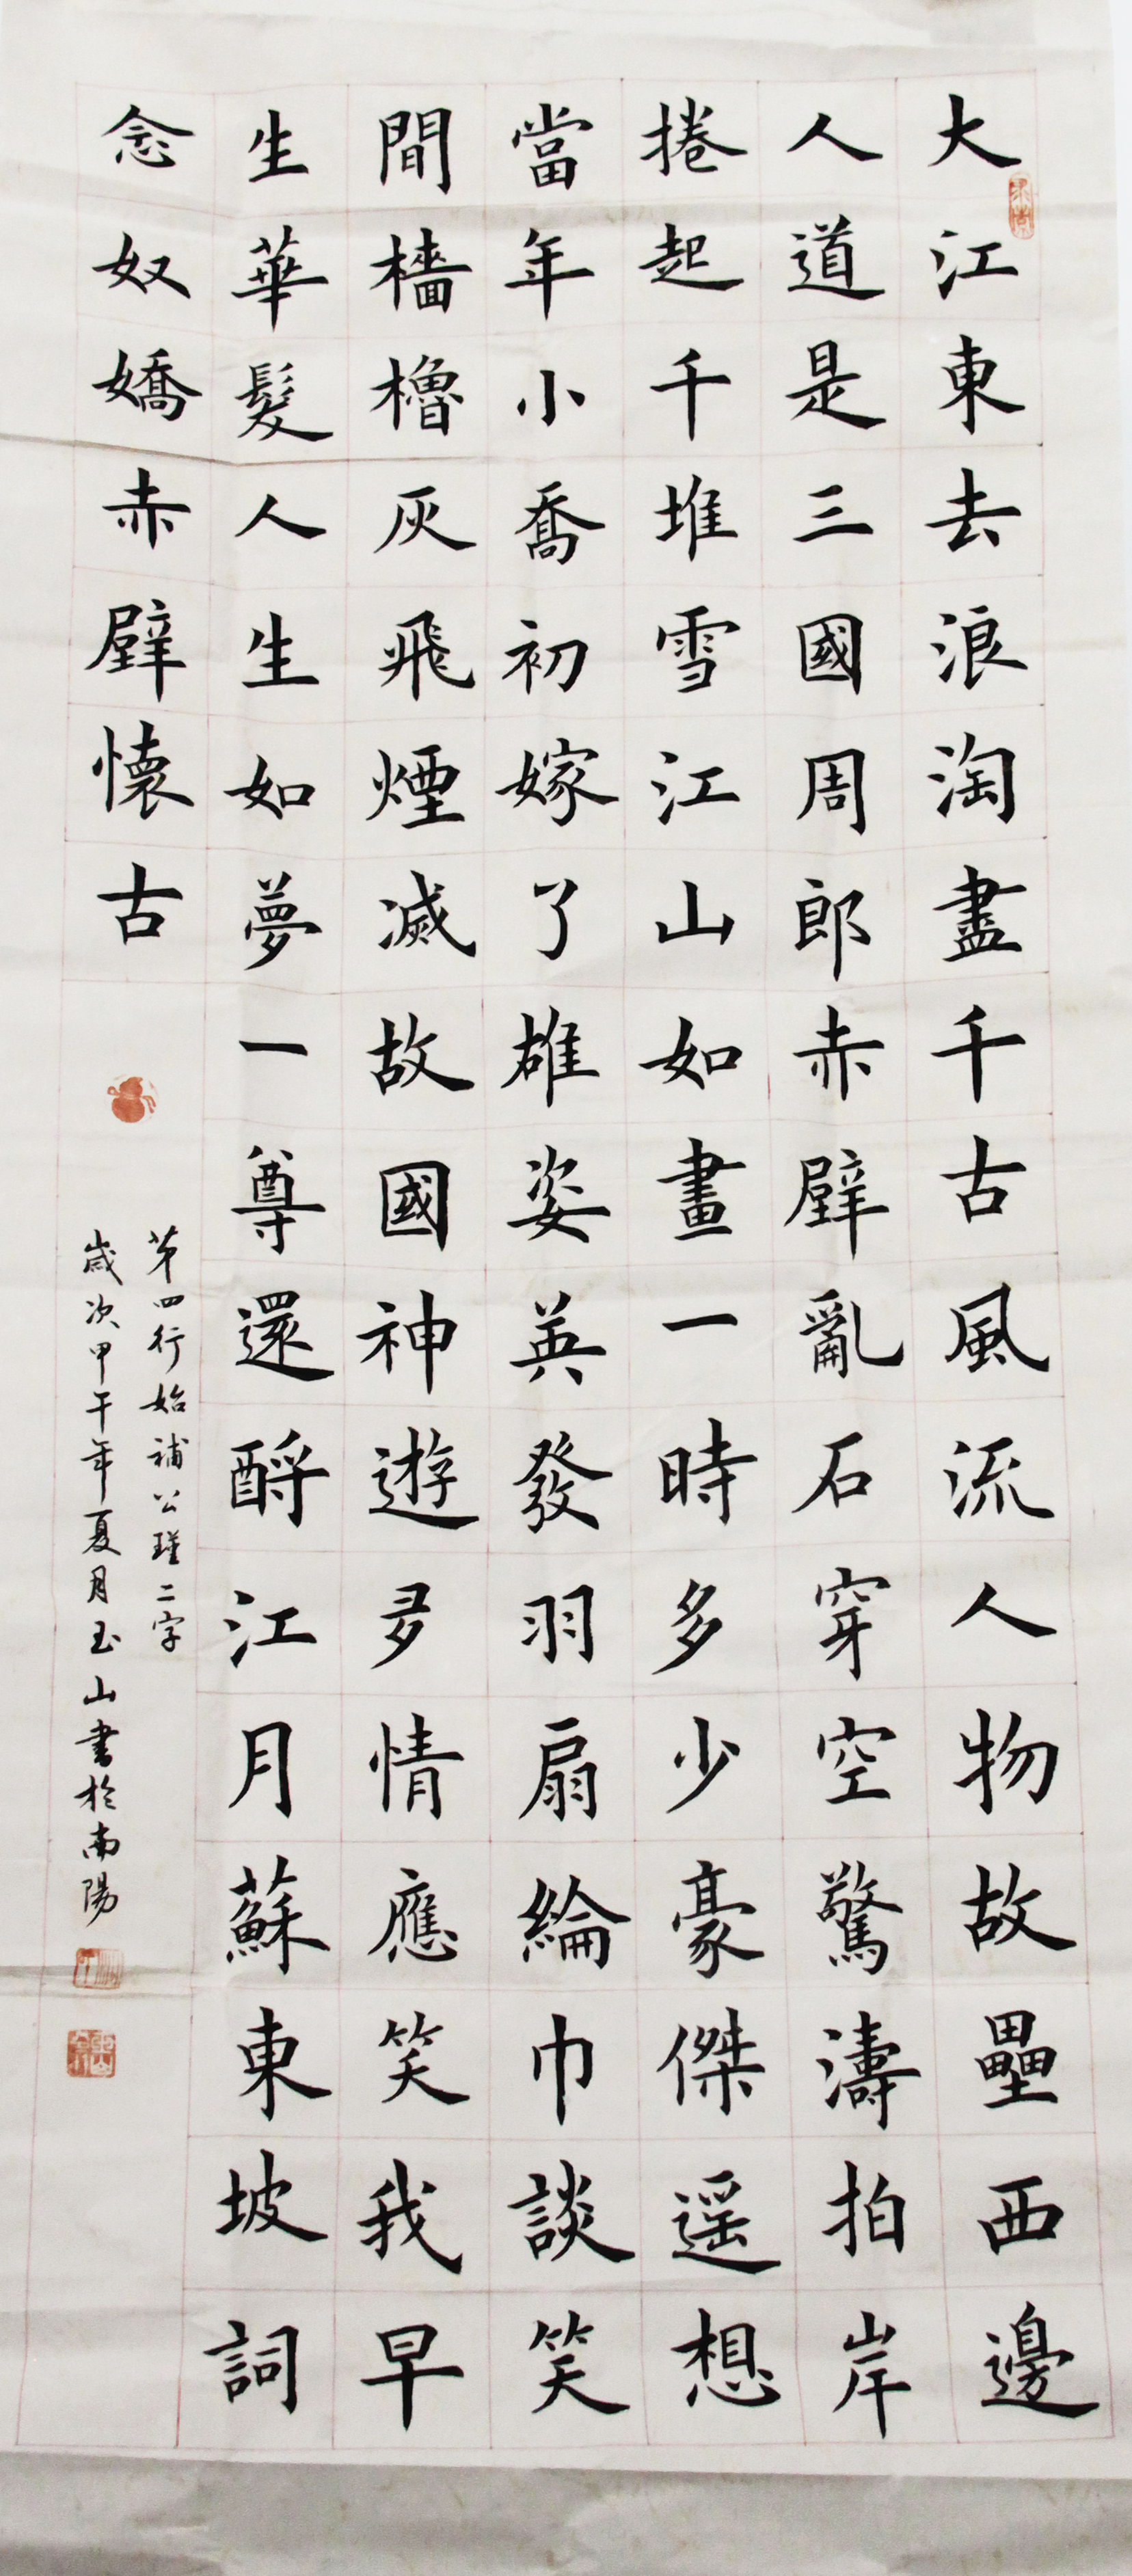 大江東去浪淘盡千古風流人物故壘西邊
人道是三國周郎赤壁亂石穿空驚濤拍岸
捲起千堆雪江山如畫一時多少豪傑遥想
當年小喬初嫁了雄姿英發羽扇綸巾談笑
間檣櫓灰飛煙滅故國神遊多情應笑我早
生華髮人生如夢一尊還酹江月蘇東坡詞
念奴嬌赤壁懷古
第四行始補公瑾二字
歲次甲午年夏月玉山書於南陽